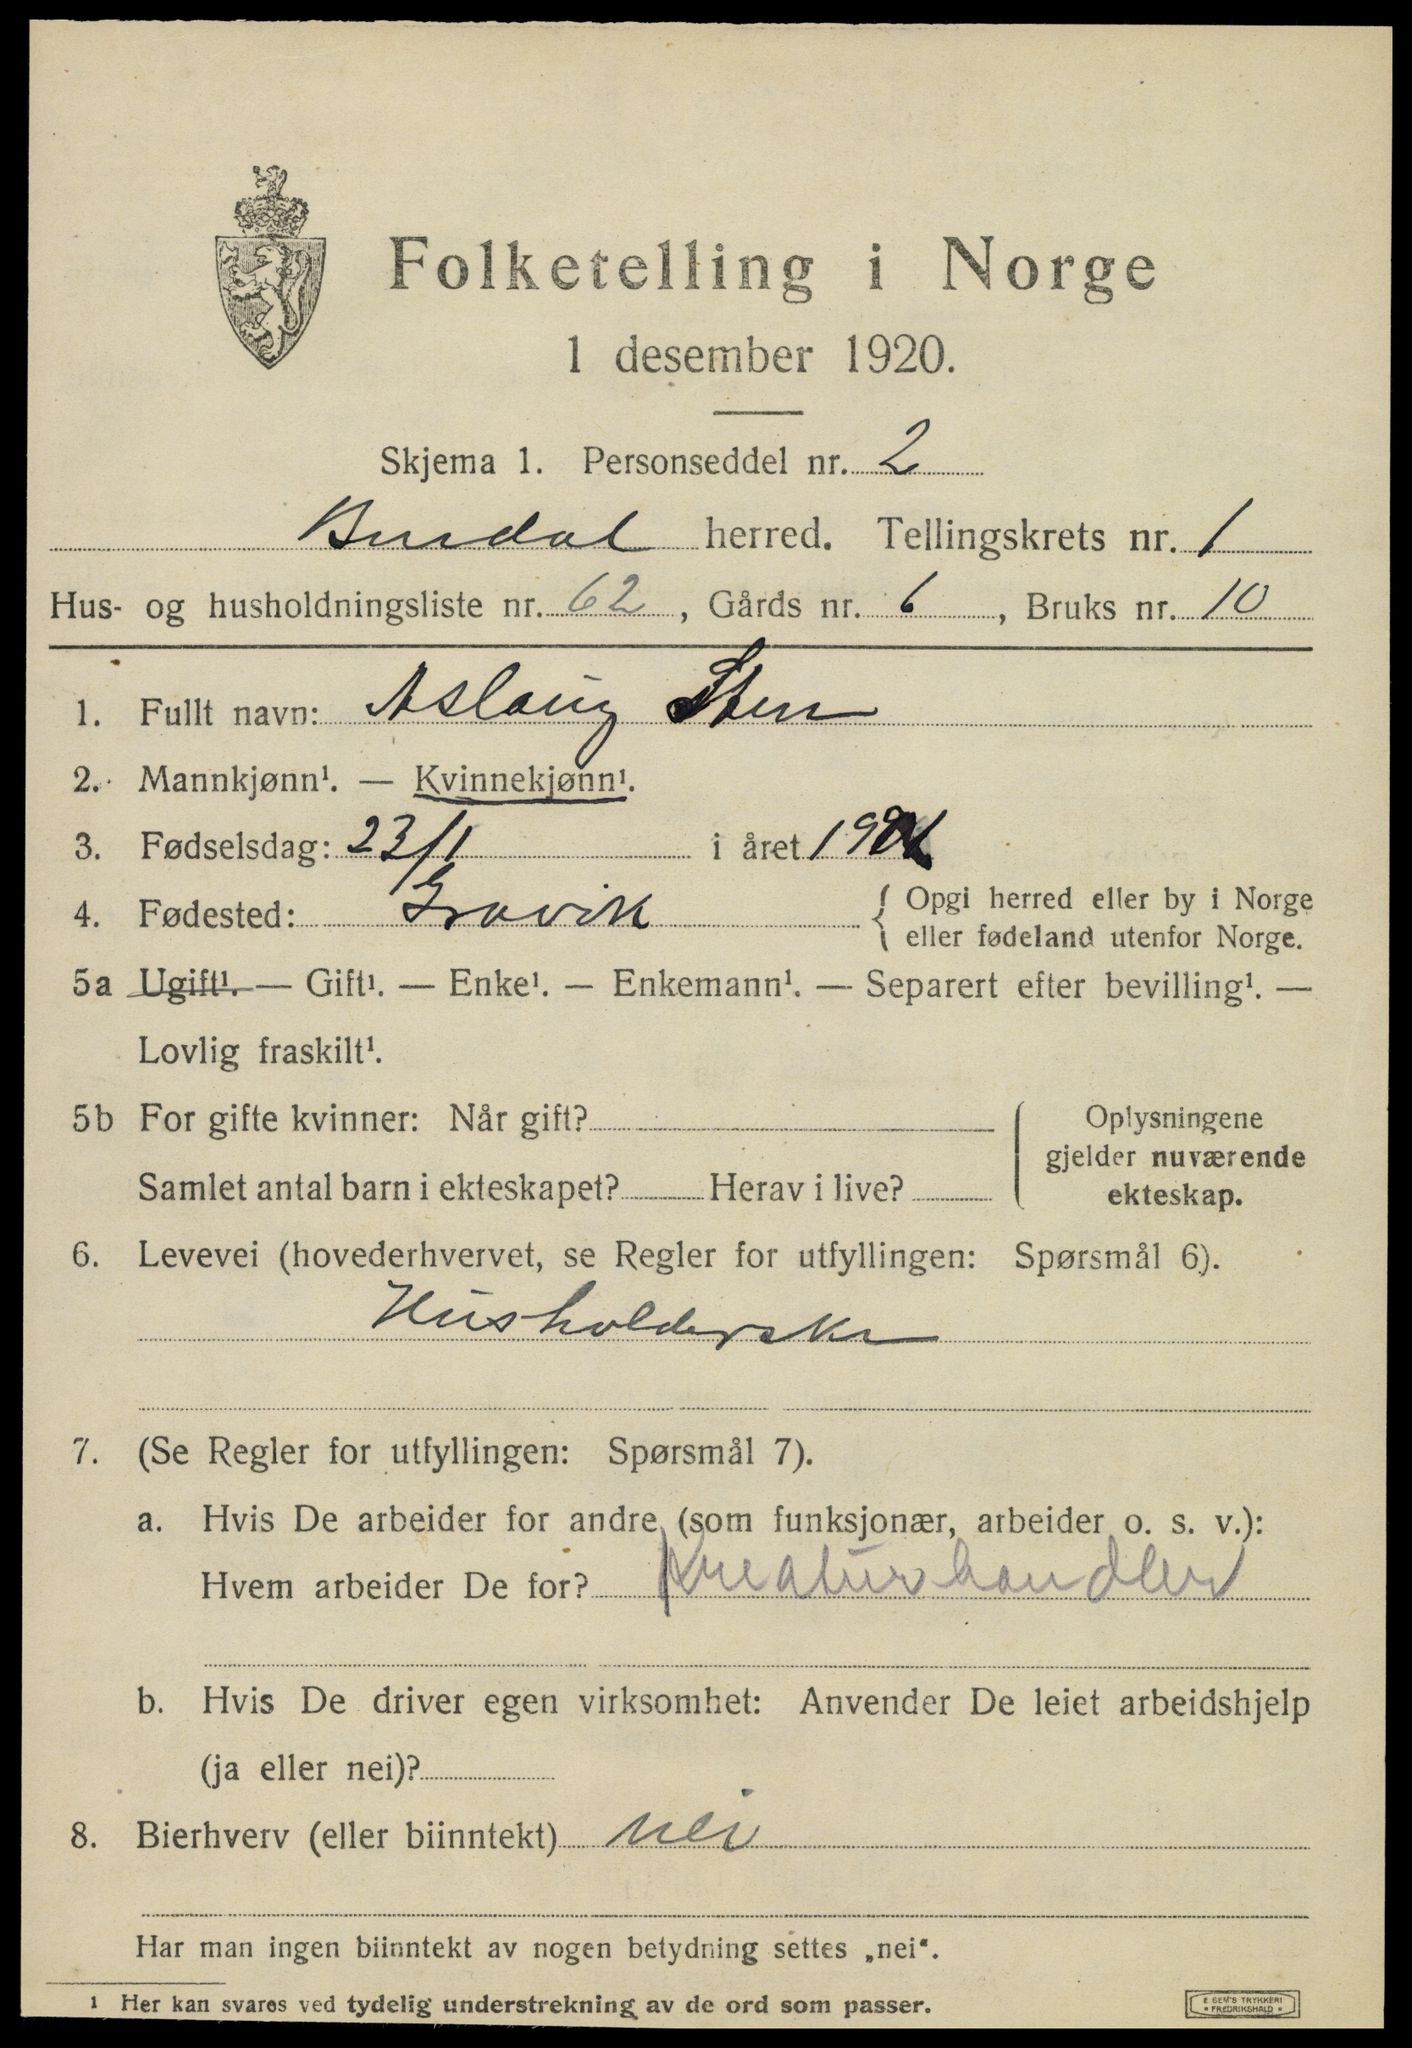 Folketelling i Norge
1 desember 1920.
Skjema 1. Personseddel nr. 2
Bindal herred. Tellingskrets nr. 1
Hus- og husholdningsliste nr. 62, Gårds nr. 6, Bruks nr. 10
1. Fullt navn: Aslaug Sten
2. Mannkjønn¹. — Kvinnekjønn¹.
3. Fødselsdag: 23/1 i året
4. Fødested: Gravik { Opgi herred eller by i Norge
eller fødeland utenfor Norge.
5a Ugift¹. — Gift¹. — Enke¹. — Enkemann¹. — Separert efter bevilling¹. —
Lovlig fraskilt¹.
5b For gifte kvinner: Når gift? { Oplysningene
gjelder nuværende
Samlet antal barn i ekteskapet? Herav i live? ekteskap.
6. Levevei (hovederhvervet, se Regler for utfyllingen: Spørsmål 6).
Husholderske
7. (Se Regler for utfyllingen: Spørsmål 7).
a. Hvis De arbeider for andre (som funksjonær, arbeider o. s. v.):
Hvem arbeider De for? Kreaturhandler
b. Hvis De driver egen virksomhet: Anvender De leiet arbeidshjelp
(ja eller nei)?
8. Bierhverv (eller biinntekt) nei
Har man ingen biinntekt av nogen betydning settes „nei“.
¹ Her kan svares ved tydelig understrekning av de ord som passer.
E SEM'S TRYKKERI
* FREDRIKSHALD *